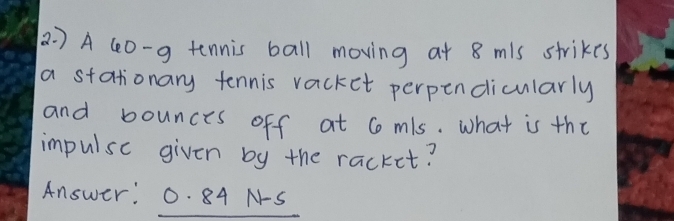 2.) A 60-g tennis ball moving at 8 m/s strikes
a stationary tennis racket perpendicularly
and bounces off at 6 m/s. What is the
impulse given by the racket?
Answer: 0.84 N-s